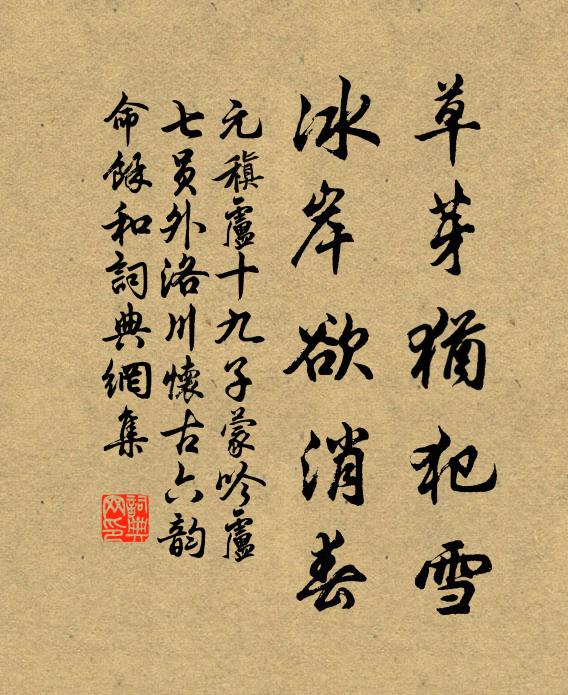 草芽猶犯雪
冰岸欲消春
元稹盧十九子蒙吟盧
七員外洛川懷古六韵
命餘和詞典網集
詞典
网印